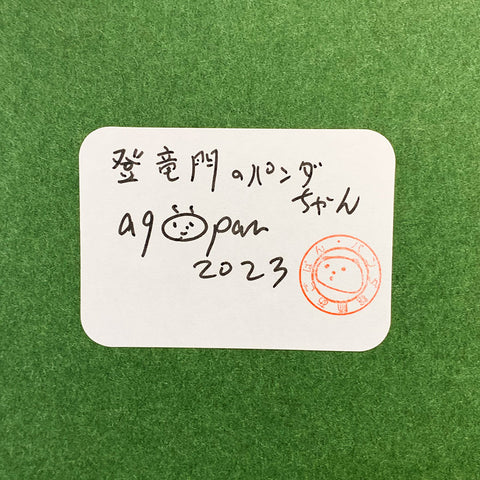 登竜門のパンダ
ちゃん
ag pan
2023